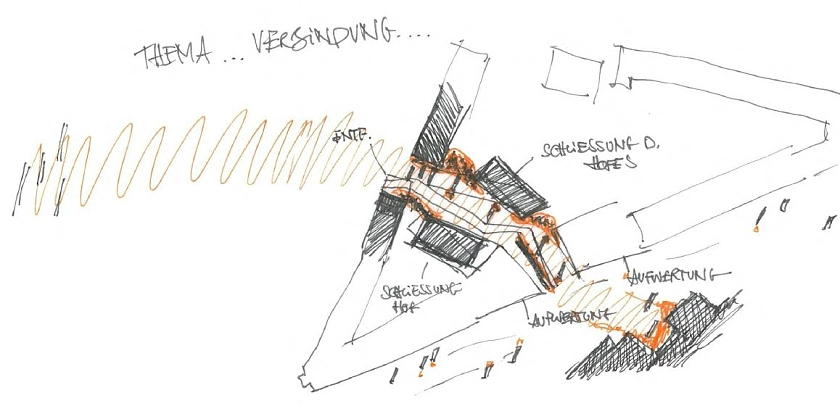 THEMA ... VERBINDUNG....
ENTF.
SCHLIESSUNG D.
HOFES
SCHLIESSUNG
HOF
AUFWERTUNG
AUFWERTUNG